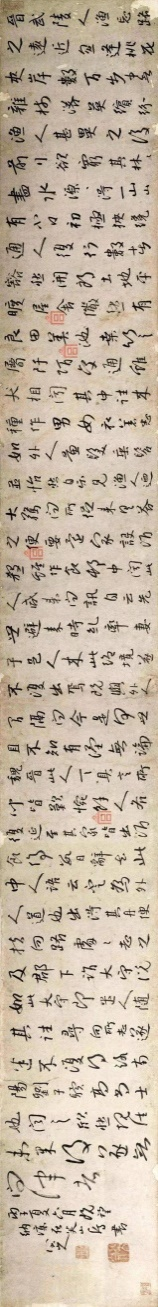 晋武陵人漁忘路
之遠近逢桃花
夾岸數百步中無
雜樹落英繽紛
漁人甚異之復
前行欲窮其林
盡水源得一山
有小口初極狹纔
通人復行數十步
豁然開朗土地平
曠屋舍儼然有
良田美池桑竹之
屬阡陌交通雞
犬相聞其中往來
種作男女衣著悉
如外人黃髮垂髫
並怡然自樂見漁人迺
大驚問所從來具答
之便要還家設酒
殺雞作食村中聞
人咸來問訊自云先
世避秦時亂率妻
子邑人來此絕境遂
不復出焉與外人
間隔問今是何世
乃不知有漢無論
魏晉此人一一具言所
聞皆歎惋餘人各
復延至其家皆出酒
食停數日辭去此
中人語云不足為外
人道也出得其舟便
扶向路處處志之
及郡下詣太守說
如此太守即遣人隨
其往尋向所志遂
迷不復得路南
陽劉子驥高尚士
也聞之欣然規往
未果後遂無
問津者
丙子夏六月既望
納涼在芙山房書
八大山人